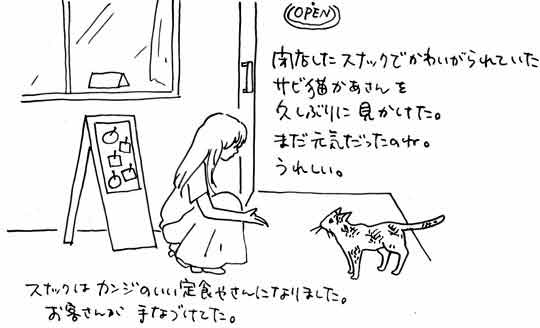 OPEN
閉店したスナックでかわいがられていた
サビ猫かあさんを
久しぶりに見かけた。
まだ元気だったのね。
うれしい。
スナックはカンジのいい定食やさんになりました。
お客さんが手なづけてた。